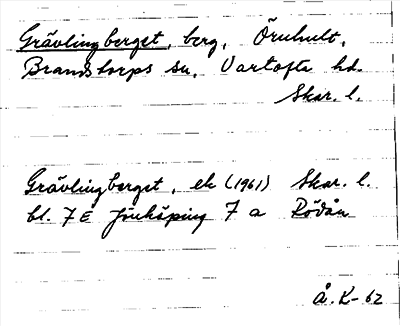 Grävlingberget, berg, Örnhult,
Brandstorps sn, Vartofta hd.
Skar. l.
Grävlingberget, ek (1961) Skar. l.
bl. 7E Jönköping 7 a Rödån
Å. K-62